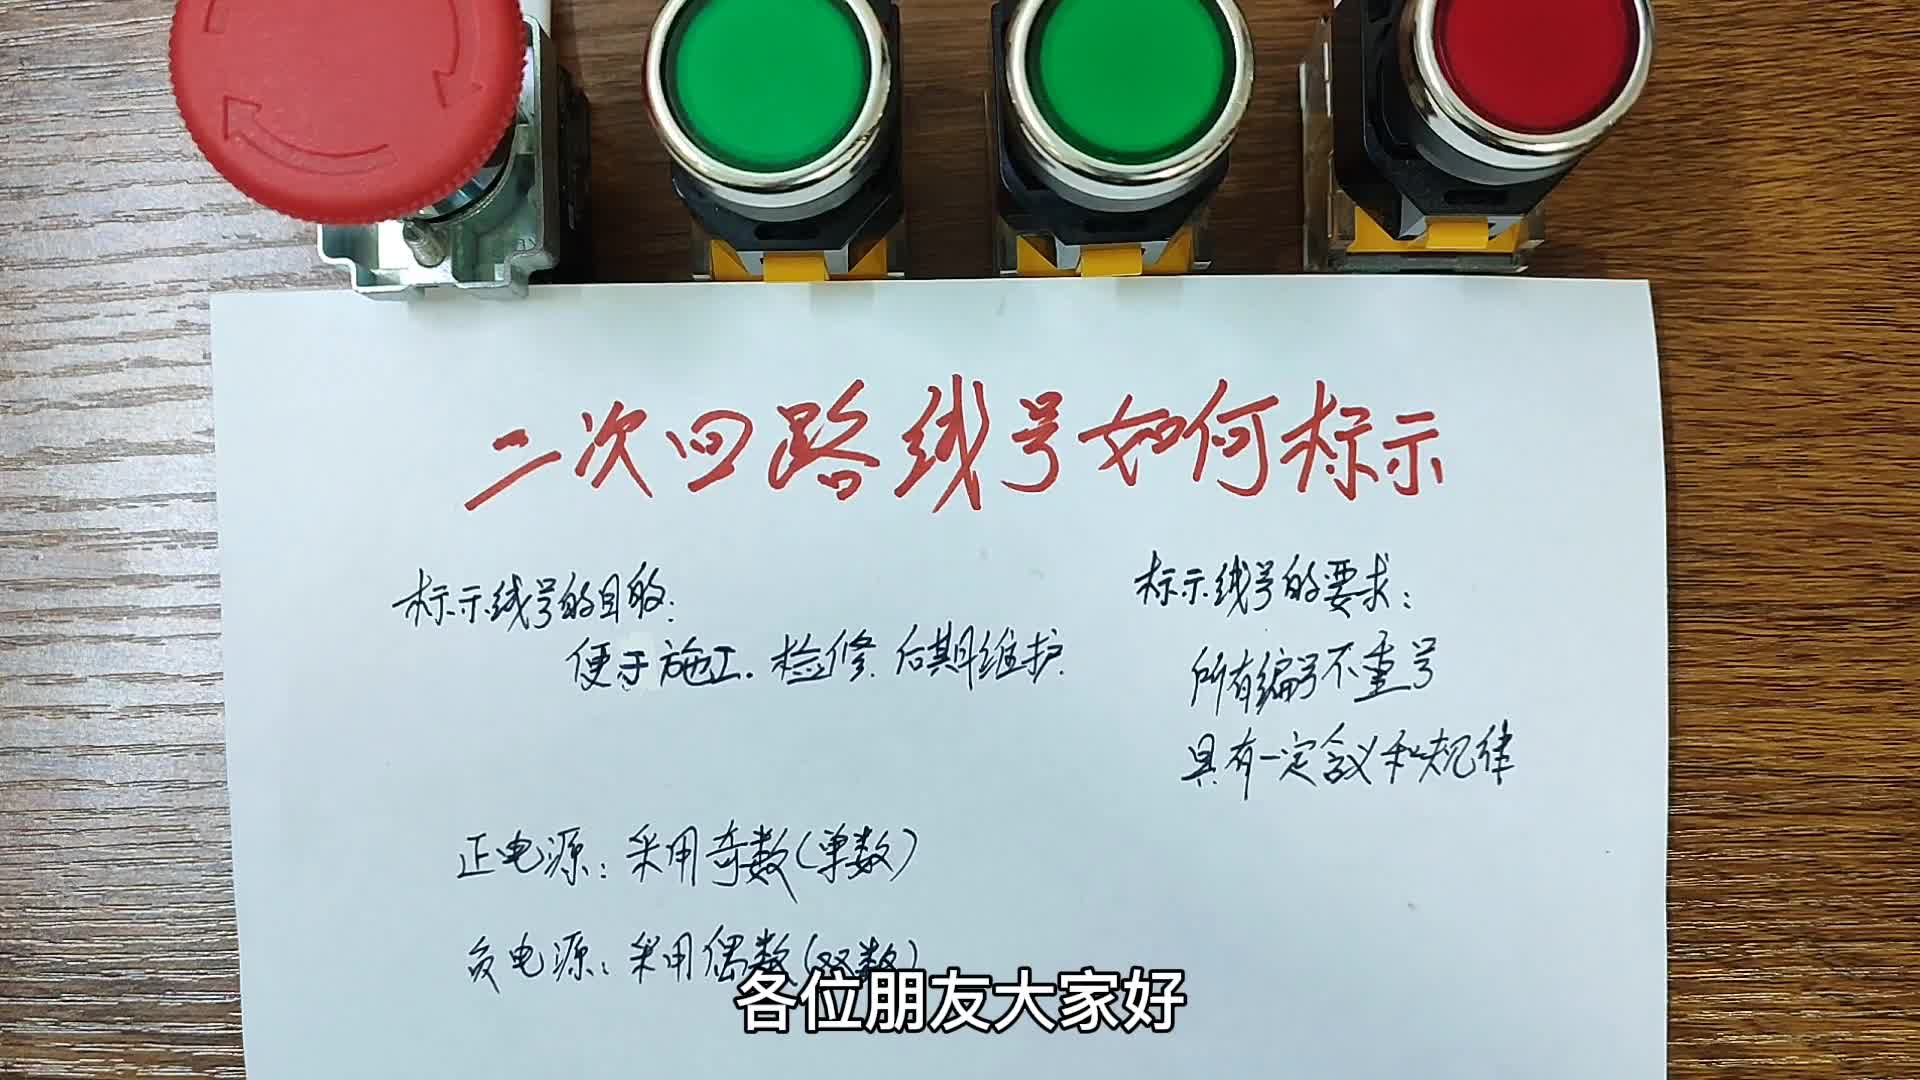 二次回路线号如何标示
标示线号的目的:
便于施工.检修.后期维护.
标示线号的要求:
所有编号不重号
具有一定含义和规律
正电源:采用奇数(单数)
负电源:采用偶数(双数)
各位朋友大家好